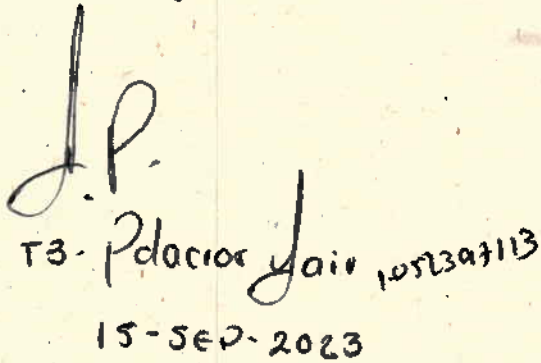 J.P.
T3. Pdacior Jair 1052397113
15-SEP-2023